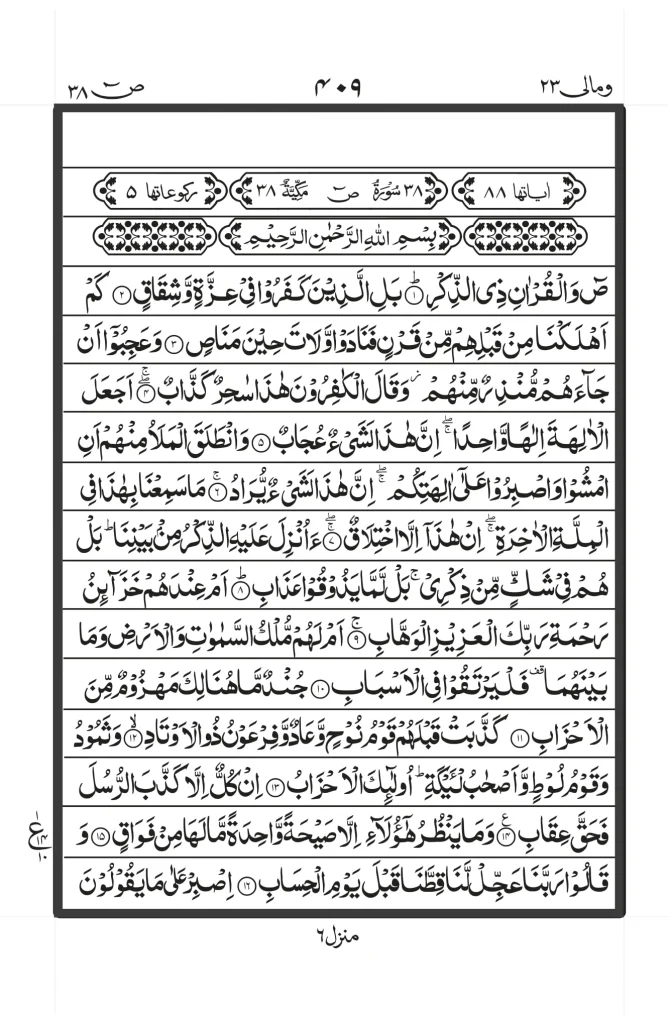 ومالی ۲۳ ۴۰۹ صٓ ۳۸
اٰیاتها ۸۸ ۳۸ سُوْرَةُ صٓ مَكِّيَّةٌ ۳۸ رکوعاتها ۵
بِسْمِ اللهِ الرَّحْمٰنِ الرَّحِيْمِ
صٓ وَالْقُرْاٰنِ ذِی الذِّكْرِؕ۝۱ بَلِ الَّذِيْنَ كَفَرُوْا فِیْ عِزَّةٍ وَّشِقَاقٍ۝۲ كَمْ
اَهْلَكْنَا مِنْ قَبْلِهِمْ مِّنْ قَرْنٍ فَنَادَوْا وَّلَاتَ حِيْنَ مَنَاصٍ۝۳ وَعَجِبُوْۤا اَنْ
جَآءَهُمْ مُّنْذِرٌ مِّنْهُمْ ز وَقَالَ الْكٰفِرُوْنَ هٰذَا سٰحِرٌ كَذَّابٌ ۖۚ۝۴ اَجَعَلَ
الْاٰلِهَةَ اِلٰهًا وَّاحِدًا ۖۚ اِنَّ هٰذَا لَشَیْءٌ عُجَابٌ۝۵ وَانْطَلَقَ الْمَلَاُ مِنْهُمْ اَنِ
امْشُوْا وَاصْبِرُوْا عَلٰۤی اٰلِهَتِكُمْ ۖۚ اِنَّ هٰذَا لَشَیْءٌ يُّرَادُ ۚ۝۶ مَا سَمِعْنَا بِهٰذَا فِی
الْمِلَّةِ الْاٰخِرَةِ ۖۚ اِنْ هٰذَاۤ اِلَّا اخْتِلَاقٌ ۖۚ۝۷ ءَاُنْزِلَ عَلَيْهِ الذِّكْرُ مِنْۢ بَيْنِنَا ؕ بَلْ
هُمْ فِیْ شَكٍّ مِّنْ ذِكْرِیْ ۚ بَلْ لَّمَّا يَذُوْقُوْا عَذَابِ ؕ۝۸ اَمْ عِنْدَهُمْ خَزَآئِنُ
رَحْمَةِ رَبِّكَ الْعَزِيْزِ الْوَهَّابِ ۚ۝۹ اَمْ لَهُمْ مُّلْكُ السَّمٰوٰتِ وَالْاَرْضِ وَمَا
بَيْنَهُمَا قف فَلْيَرْتَقُوْا فِی الْاَسْبَابِ۝۱۰ جُنْدٌ مَّا هُنَالِكَ مَهْزُوْمٌ مِّنَ
الْاَحْزَابِ۝۱۱ كَذَّبَتْ قَبْلَهُمْ قَوْمُ نُوْحٍ وَّعَادٌ وَّفِرْعَوْنُ ذُو الْاَوْتَادِ ۙ۝۱۲ وَثَمُوْدُ
وَقَوْمُ لُوْطٍ وَّاَصْحٰبُ لْئَيْكَةِ ؕ اُولٰٓئِكَ الْاَحْزَابُ۝۱۳ اِنْ كُلٌّ اِلَّا كَذَّبَ الرُّسُلَ
فَحَقَّ عِقَابِ ع۝۱۴ وَمَا يَنْظُرُ هٰۤؤُلَآءِ اِلَّا صَيْحَةً وَّاحِدَةً مَّا لَهَا مِنْ فَوَاقٍ۝۱۵ وَ
ع ۱ ۱۴ ۱۰
قَالُوْا رَبَّنَا عَجِّلْ لَّنَا قِطَّنَا قَبْلَ يَوْمِ الْحِسَابِ۝۱۶ اِصْبِرْ عَلٰی مَا يَقُوْلُوْنَ
منزل ۶